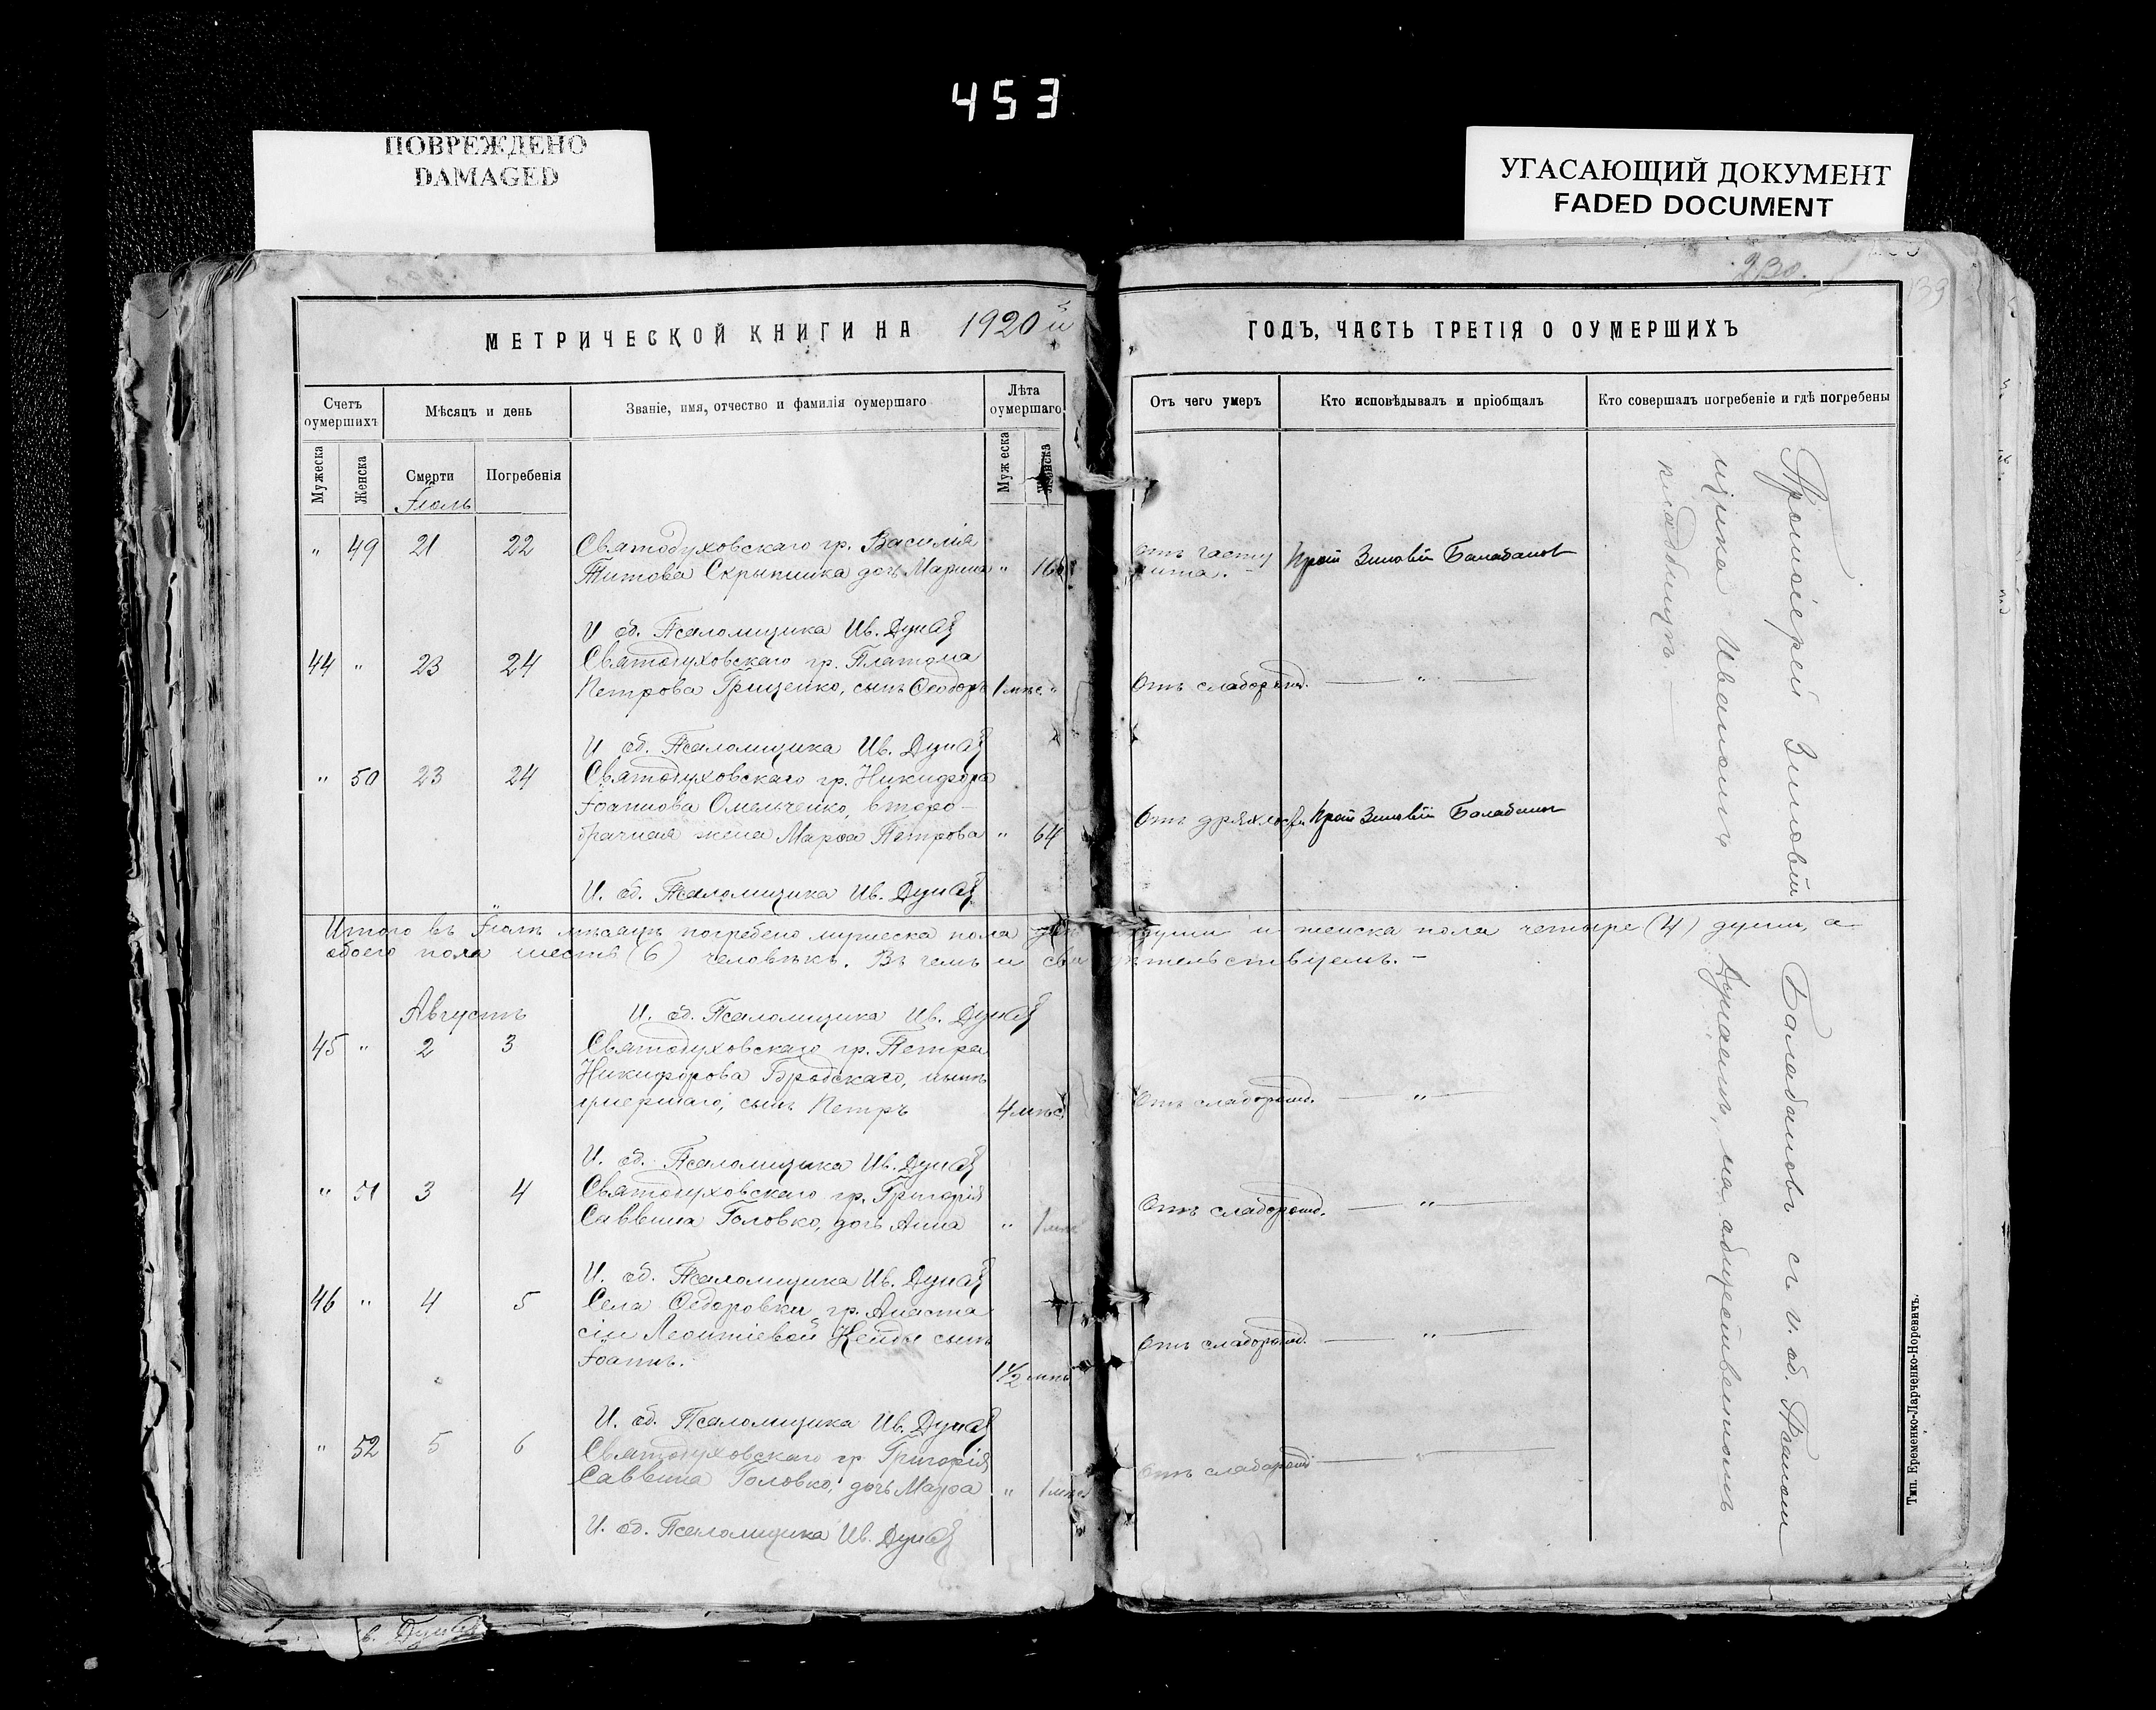 453
ПОВРЕЖДЕНО
DAMAGED
УГАСАЮЩИЙ ДОКУМЕНТ
FADED DOCUMENT
230.
139
МЕТРИЧЕСКОЙ КНИГИ НА 1920 й
ГОДЪ, ЧАСТЬ ТРЕТІЯ О ОУМЕРШИХЪ
Счетъ оумершихъ
Мѣсяцъ и день
Званіе, имя, отчество и фамилія оумершаго
Лѣта оумершаго
Отъ чего умеръ
Кто исповѣдывалъ и пріобщалъ
Кто совершалъ погребеніе и гдѣ погребены
Мужеска
Женска
Смерти
Погребенія
Мужеска
Женска
Іюль
" 49 21 22 Святодуховскаго гр. Василія
Титова Скрыпника дочь Марина " Прот Зиновій Балабанов
И. об. Псаломщика Ив. Дунай
44 " 23 24 Святодуховскаго гр. Платона
Петрова Гриценко, сынъ Ѳеодоръ 1 мѣс. " Отъ слаборожд. "
И об. Псаломщика Ив. Дунай
" 50 23 24 Святодуховскаго гр. Никифора
Іоаннова Омельченко, второ-
брачная жена Марѳа Петрова " 64 Отъ дряхлости Прот Зиновій Балабанов
И. об. Псаломщика Ив. Дунай
Итого въ Іюлѣ мѣсяцѣ погребено мужеска пола двѣ души и женска пола четыре (4) души, а
обоего пола шесть (6) человѣкъ. Въ чемъ и свидѣтельствуемъ. -
Августъ И. об. Псаломщика Ив. Дунай
45 " 2 3 Святодуховскаго гр. Петра
Никифорова Бродскаго, нынѣ
умершаго, сынъ Петръ 4 мѣс. Отъ слаборожд. "
И. об. Псаломщика Ив. Дунай
" 51 3 4 Святодуховскаго гр. Григорія
Саввина Головко, дочь Анна " 1 мѣс Отъ слаборожд. "
И. об. Псаломщика Ив. Дунай
46 " 4 5 Села Ѳедоровки гр. Анаста
сіи Леонтіевой сынъ
Іоаннъ. 1 1/2 мѣс Отъ слаборожд. "
И. об. Псаломщика Ив. Дунай
" 52 5 6 Святодуховскаго гр. Григорія
Саввина Головко, дочь Марѳа " 1 мѣс Отъ слаборожд "
И. об. Псаломщика Ив. Дунай
Протоіерей Зиновій Балабановъ съ и. об. Псалом
щика Иваномъ Дунаемъ, на общественномъ
кладбищѣ
Тип. Еременко-Ларченко-Норевичъ.
в. Дунай